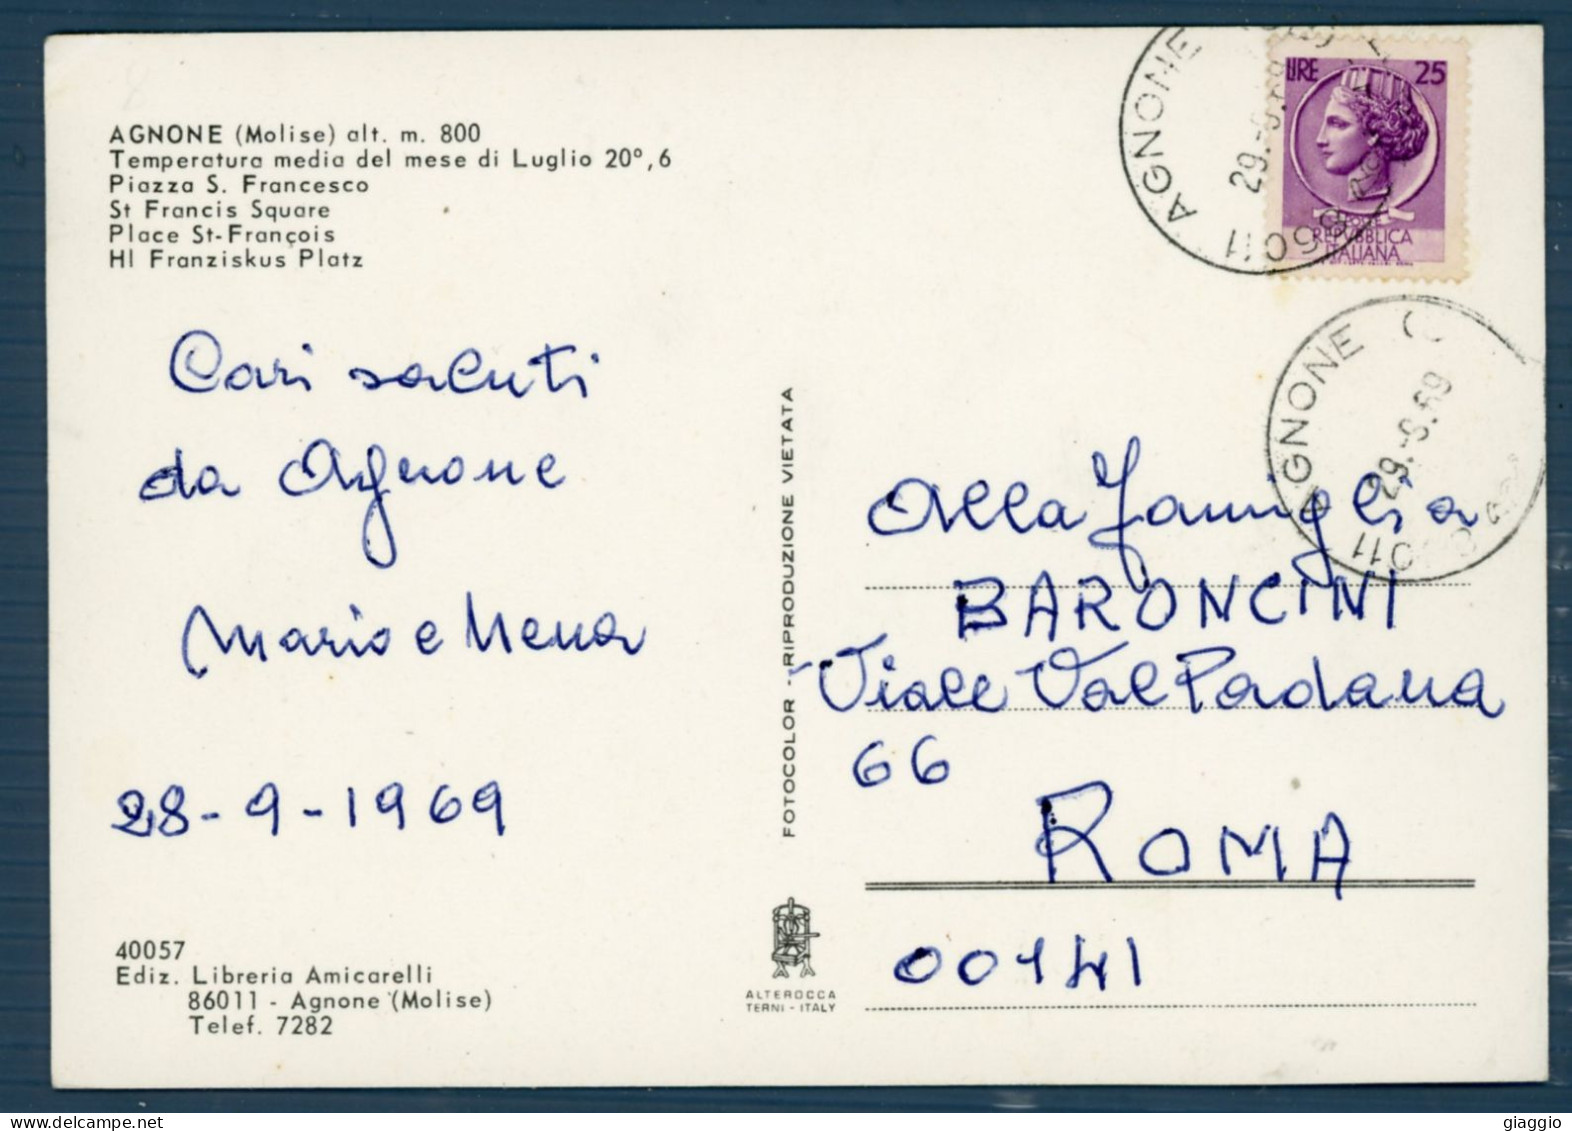 AGNONE (Molise) alt. m. 800
Temperatura media del mese di Luglio 20°,6
Piazza S. Francesco
St Francis Square
Place St-François
Hl Franziskus Platz
Cari saluti
da Agnone
Mario e Nena
28-9-1969
40057
Ediz. Libreria Amicarelli
86011 - Agnone (Molise)
Telef. 7282
FOTOCOLOR - RIPRODUZIONE VIETATA
ALTEROCCA
TERNI - ITALY
LIRE 25
REPVBBLICA
ITALIANA
AGNONE
29.-9.69
86011
AGNONE
29.-9.69
011
Alla Famiglia
BARONCINI
Viale Val Padana
66
ROMA
00141
giaggio